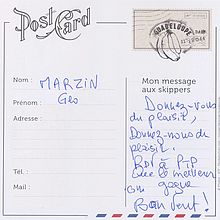 Post Card
GUADELOUPE
Nom : MARZIN
Prénom : Géo
Adresse :
Tél. :
Mail :
Mon message
aux skippers
Donnez-vous
du plaisir,
Donnez-nous du
plaisir.
RDV à P-à-P
Que le meilleur
gagne
Bon vent !